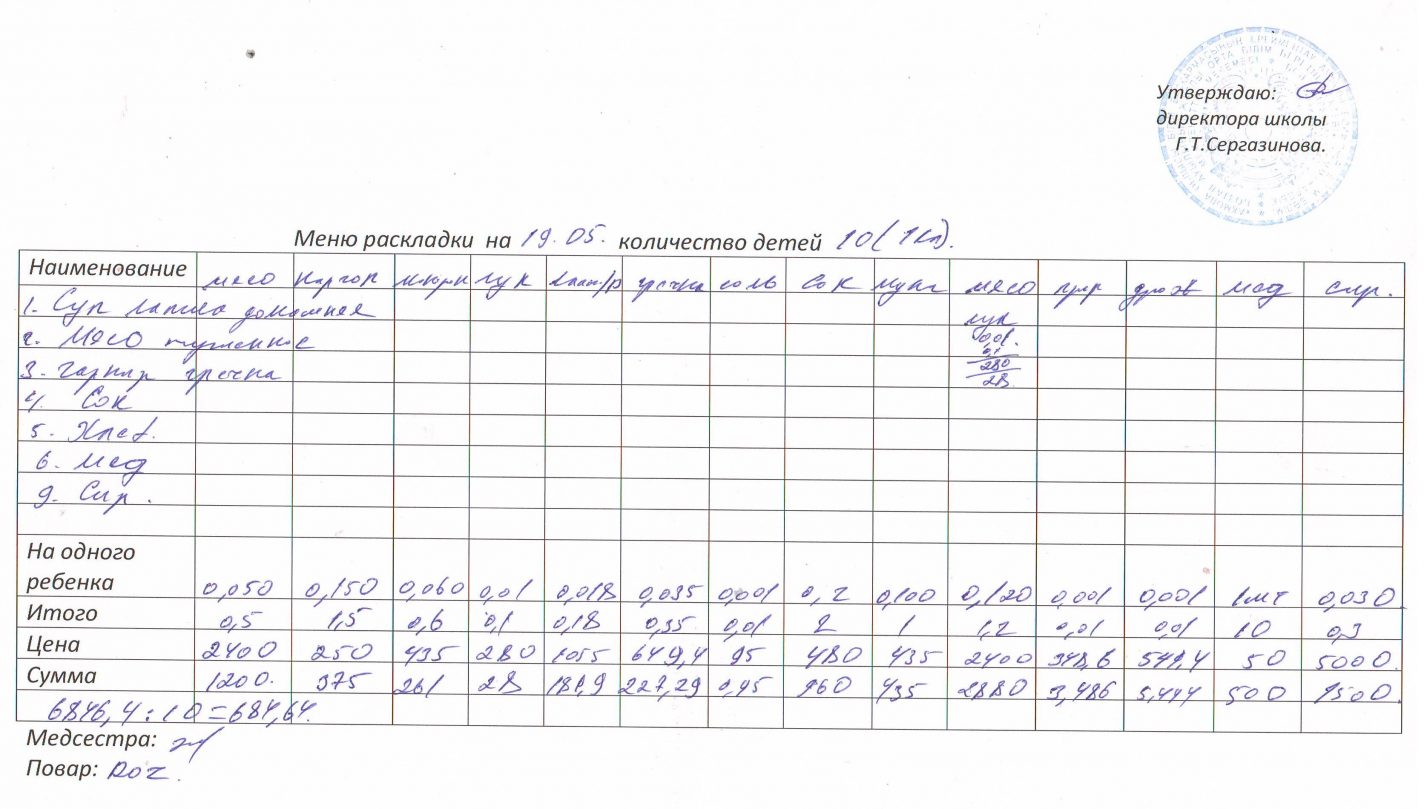 Утверждаю:
директора школы
Г.Т.Сергазинова.
Меню раскладки на 19.05. количество детей 10 (1кл).
Наименование мясо картоп лук гречка соль сок мука мясо дрож мед сыр.
1. Суп лапша домашняя лук
2. Мясо тушенное 0,01. 0,1
3. гарнир гречка 280 28
4. Сок
5. Хлеб.
6. мед
Сыр.
На одного
ребенка 0,050 0,150 0,060 0,01 0,018 0,035 0,001 0,2 0,100 0,120 0,001 0,001 1шт 0,030
Итого 0,5 1,5 0,6 0,1 0,18 0,35 0,01 2 1 1,2 0,01 0,01 10 0,3
Цена 2400 250 435 280 1055 649,4 95 480 435 2400 348,6 544,4 50 5000.
Сумма 1200. 375 261 28 189,9 227,29 0,95 960 435 2880 3,486 5,444 500 1500.
6846,4 : 10 = 684,64.
Медсестра:
Повар: